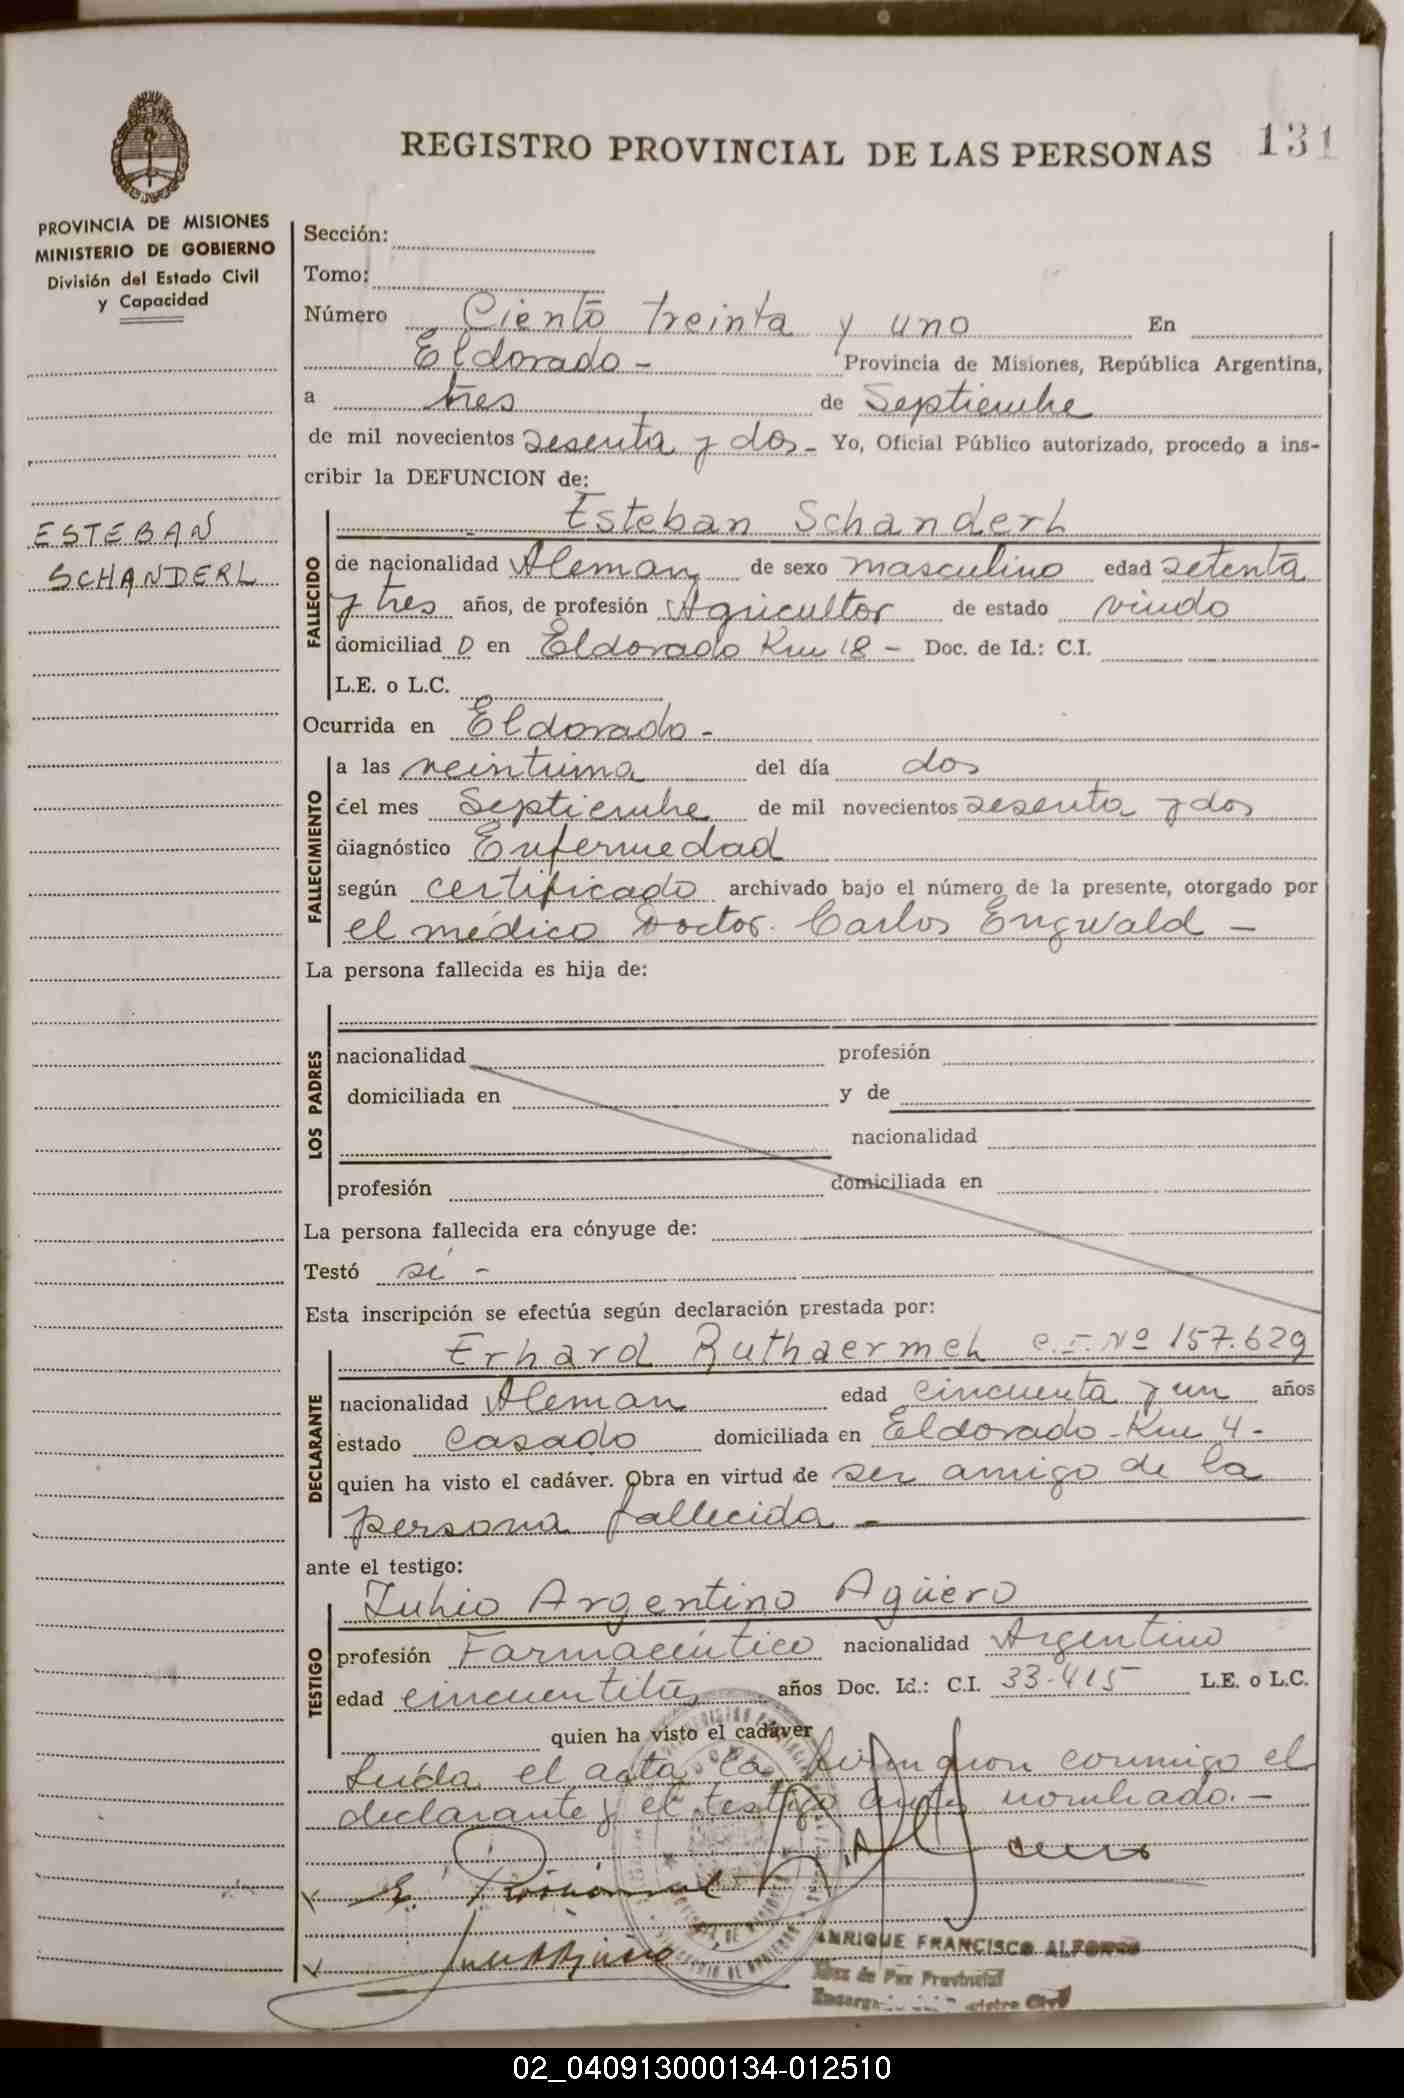 REGISTRO PROVINCIAL DE LAS PERSONAS 131
PROVINCIA DE MISIONES
MINISTERIO DE GOBIERNO
División del Estado Civil
y Capacidad
ESTEBAN
SCHANDERL
Sección:
Tomo:
Número Ciento treinta y uno En
Eldorado - Provincia de Misiones, República Argentina,
a tres de Septiembre
de mil novecientos sesenta y dos - Yo, Oficial Público autorizado, procedo a ins-
cribir la DEFUNCION de:
Esteban Schanderl
FALLECIDO
de nacionalidad Aleman de sexo masculino edad setenta
y tres años, de profesión Agricultor de estado viudo
domiciliad o en Eldorado Km 18 - Doc. de Id.: C.I.
L.E. o L.C.
Ocurrida en Eldorado -
FALLECIMIENTO
a las veintiuna del día dos
del mes Septiembre de mil novecientos sesenta y dos
diagnóstico Enfermedad
según certificado archivado bajo el número de la presente, otorgado por
el médico Doctor. Carlos Engwald -
La persona fallecida es hija de:
LOS PADRES
nacionalidad profesión
domiciliada en y de
nacionalidad
profesión domiciliada en
La persona fallecida era cónyuge de:
Testó si -
Esta inscripción se efectúa según declaración prestada por:
DECLARANTE
Erhard C.I. Nº 157.629
nacionalidad Aleman edad cincuenta y un años
estado casado domiciliada en Eldorado - Km 4 -
quien ha visto el cadáver. Obra en virtud de ser amigo de la
persona fallecida -
ante el testigo:
TESTIGO
Julio Argentino Agüero
profesión Farmacéutico nacionalidad Argentino
edad años Doc. Id.: C.I. 33.415 L.E. o L.C.
quien ha visto el cadáver
Leída el acta la firman con conmigo el
declarante y el testigo antes nombrado. -
ENRIQUE FRANCISCO ALFONSO
Juez de Paz Provincial
02_040913000134-012510